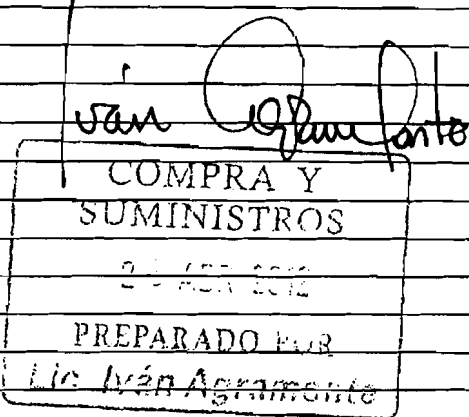 Iván Agramonte
COMPRA Y
SUMINISTROS
ABR 2012
PREPARADO POR
Lic. Iván Agramonte